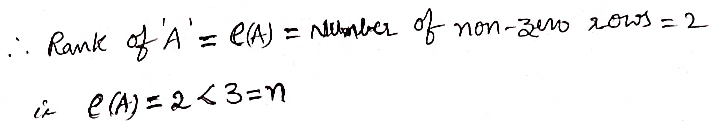 ∴ Rank of 'A' = ρ(A) = Number of non-zero rows = 2
ie ρ(A) = 2 < 3 = n